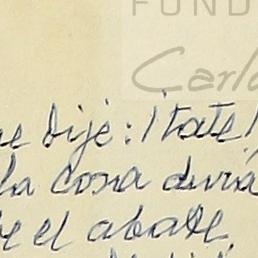 FUND
Carlo
me dije: ¡tate!
la cosa durá
be el abate,